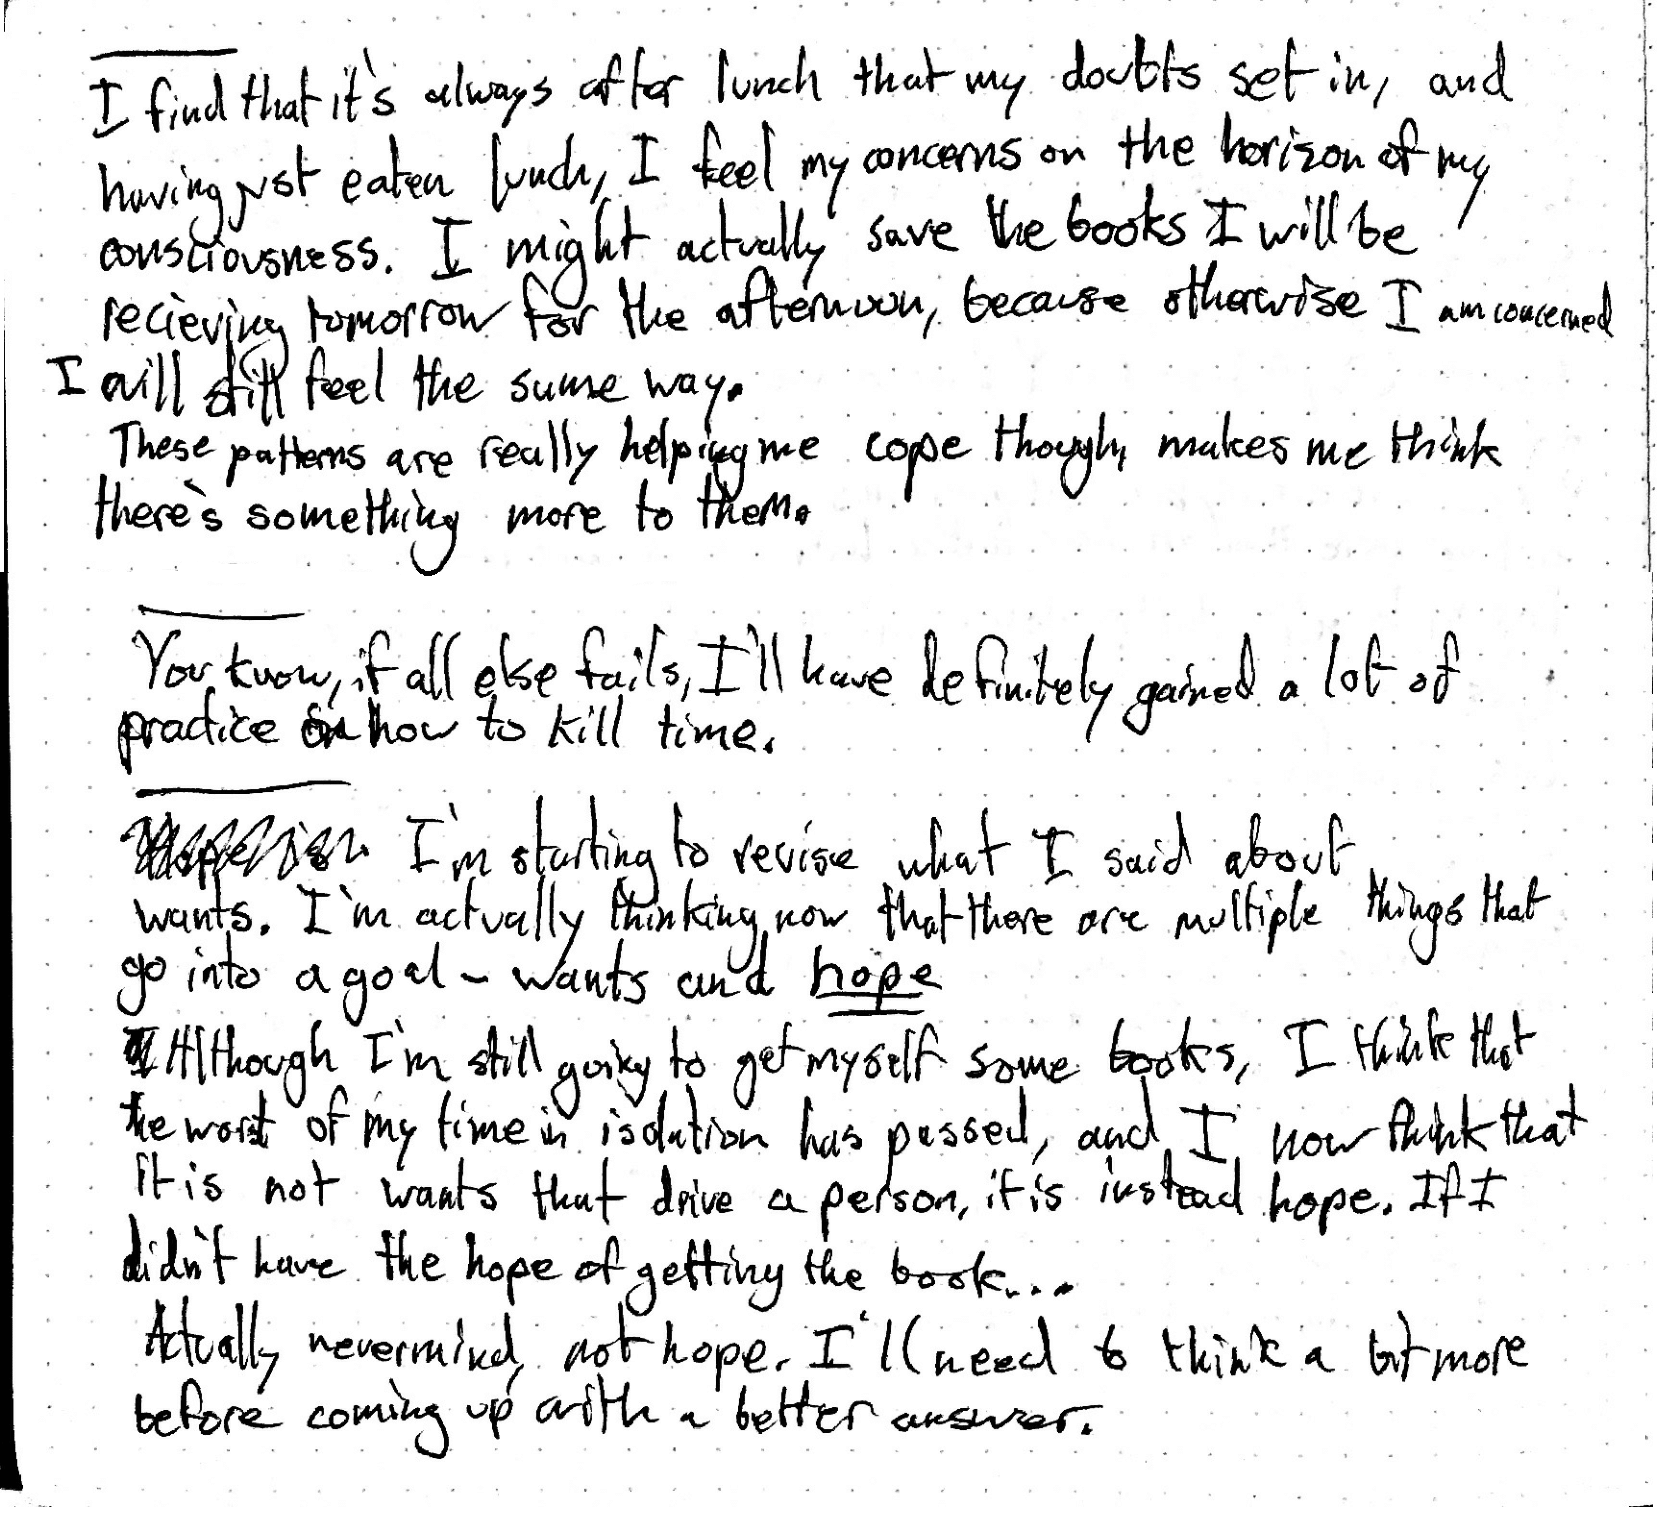 I find that it's always after lunch that my doubts set in, and
having just eaten lunch, I feel my concerns on the horison of my
consciousness. I might actually save the books I will be
recieving tomorrow for the afternoon, because otherwise I am concerned
I will still feel the same way.
These patterns are really helping me cope though, makes me think
there's something more to them.
You know, if all else fails, I'll have definitely gained a lot of
practice on how to kill time.
I'm starting to revise what I said about
wants. I'm actually thinking now that there are multiple things that
go into a goal - wants and hope
Although I'm still going to get myself some books, I think that
the worst of my time in isolation has passed, and I now think that
it is not wants that drive a person, it is instead hope. If I
didn't have the hope of getting the book...
Actually nevermind, not hope. I'll need to think a bit more
before coming up with a better answer.